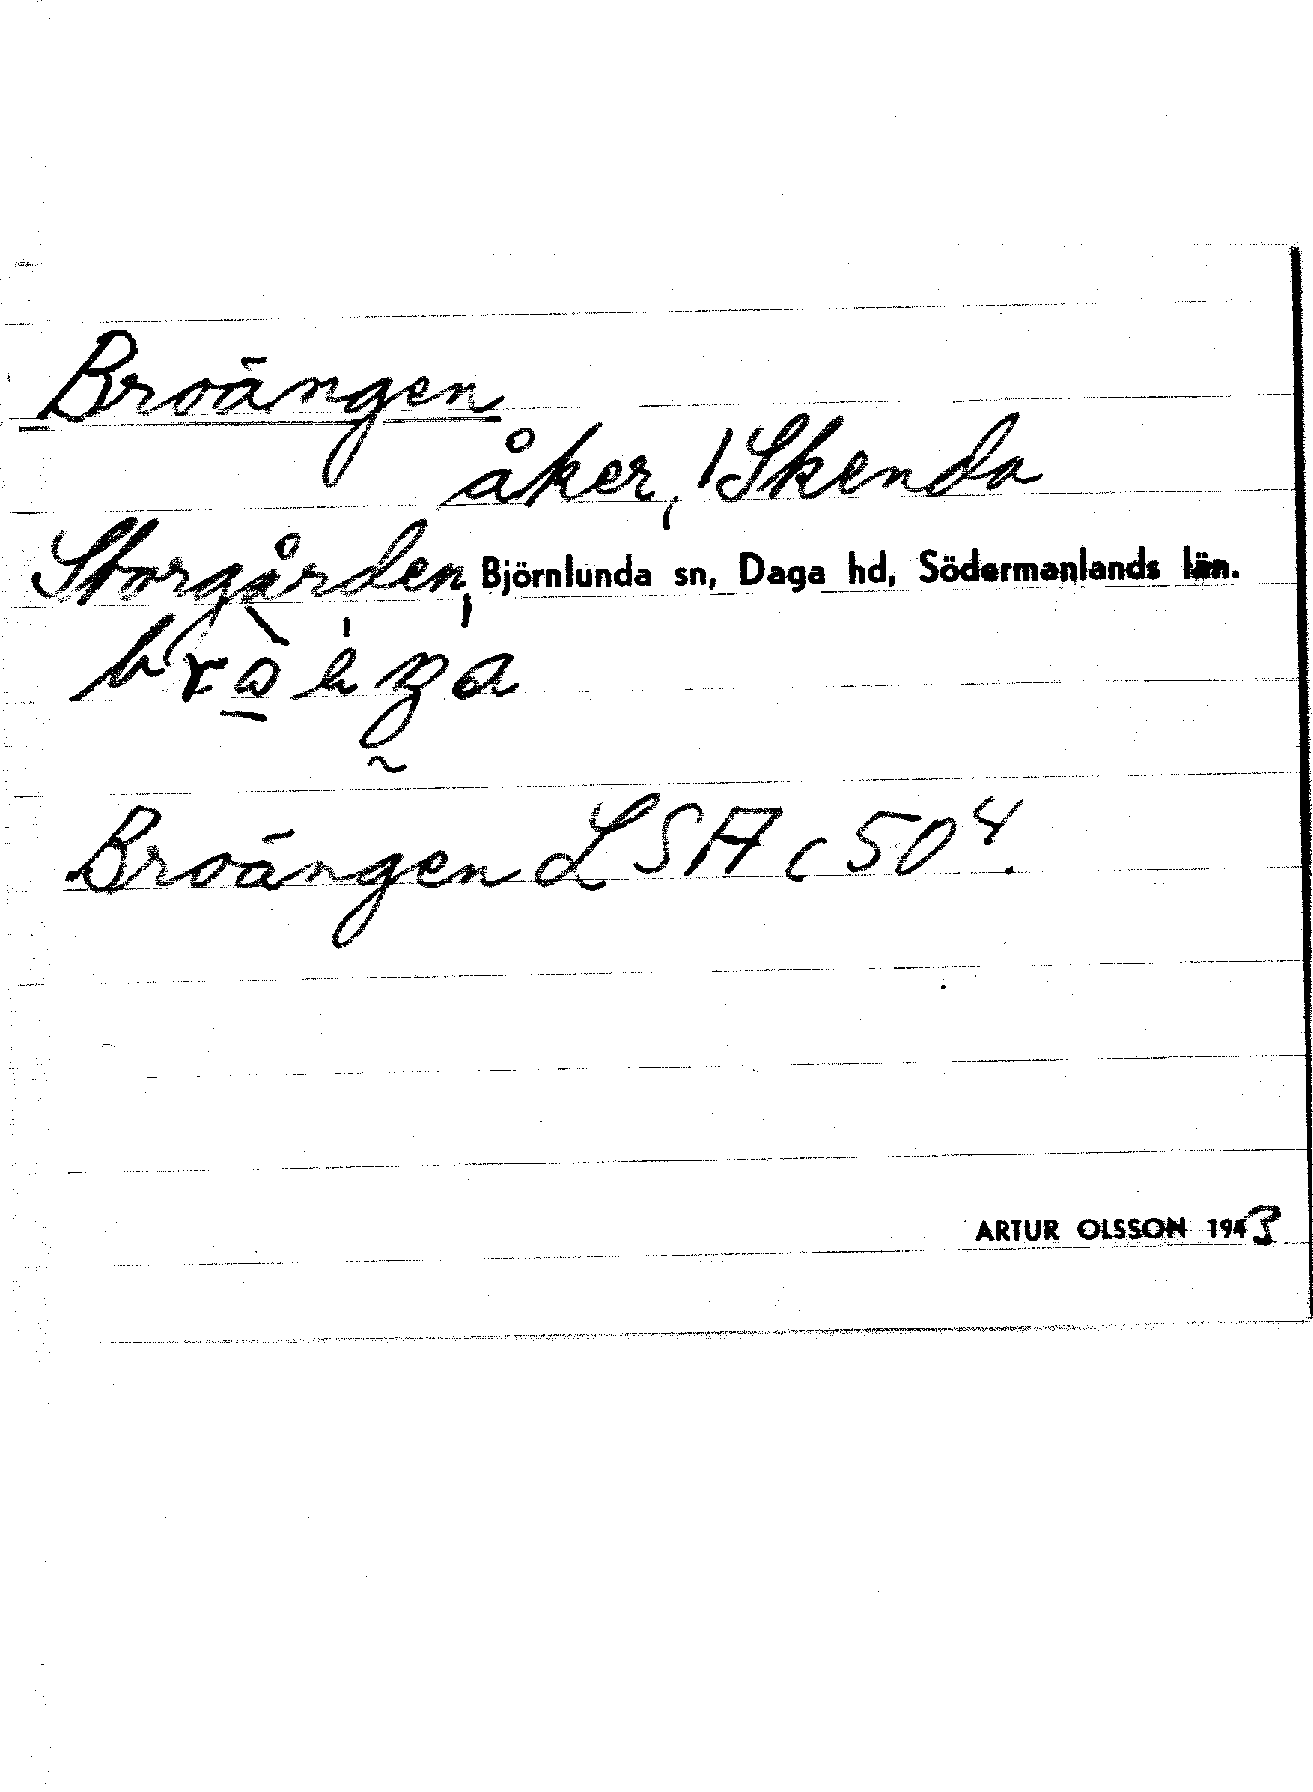 Broängen
åker, 1 Skenda
Storgården, Björnlunda sn, Daga hd, Södermanlands län.
Broängen LSA C 50⁴.
ARTUR OLSSON 1943